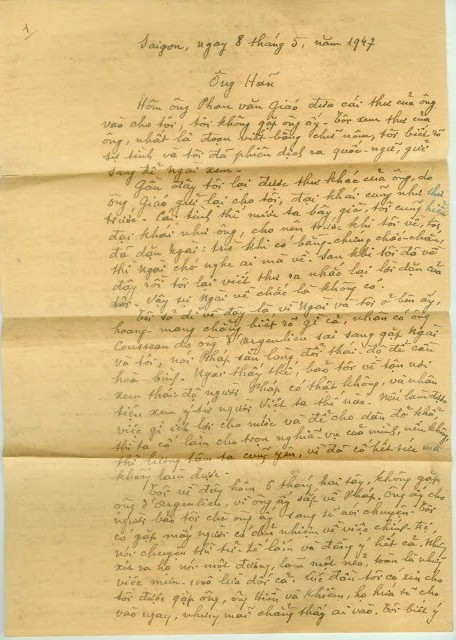 1/
Saigon, ngay 8 tháng 5, năm 1947
Ông Hãn
Hôm ông Phan văn Giáo đưa cái thư của ông
vào cho tôi, tôi không gặp ông ấy. Tôi xem thư của
ông, nhất là đoạn viết bằng chữ nôm, tôi biết rõ
sự tình và tôi đã phiên dịch ra quốc-ngữ gửi
sang để ngài xem.
Gần đây tôi lại được thư khác của ông, do
ông Giáo gửi lại cho tôi, đại khái cũng như thư
trước. Cái tình thế nước ta bây giờ, tôi cũng hiểu
đại khái như ông, cho nên trước khi tôi về, tôi
đã dặn Ngài: trừ khi có bằng-chứng chắc-chắn,
thì Ngài chớ nghe ai mà về. Sau khi tôi đã về
đây rồi tôi lại viết thư ra nhắc lại lời dặn của
tôi. Vậy sự Ngài về chắc là không có.
Tôi sở dĩ về đây là vì Ngài và tôi ở bên ấy,
hoang-mang chẳng biết rõ gì cả, nhân có ông
Cousseau do ông d'Argenlieu sai sang gặp Ngài
và tôi, nói Pháp sẵn lòng đổi thái-độ để cầu
hoà bình. Ngài thấy thế, bảo tôi về tận nơi
xem thái-độ người Pháp có thật không, và nhân
tiện xem ý-tứ người Việt ta thế nào. Nếu làm được
việc gì ích lợi cho nước và để cho dân đỡ khổ,
thì ta cố làm cho trọn nghĩa-vụ của mình, nếu không,
thì lương tâm ta cũng yên, vì đã cố hết sức mà
không làm được.
Tôi về đây hôm 6 tháng hai tây, không gặp
ông d'Argenlieu, vì ông ấy sắp về Pháp. Ông ấy cho
người bảo tôi cho ông ấy sang để nói chuyện. Tôi
có gặp mấy người có chủ nhiệm về việc chính-trị,
nói chuyện thì tử-tế lắm và đồng ý hết cả. Nhưng
xét ra họ nói một đường, làm một nẻo, toàn là những
việc lừa đối cả. Lúc đầu tôi có xin cho
tôi được gặp ông, ông Hiền và Khiêm, họ hứa sẽ cho
vào ngay, nhưng mãi chẳng thấy ai vào. Tôi biết ý